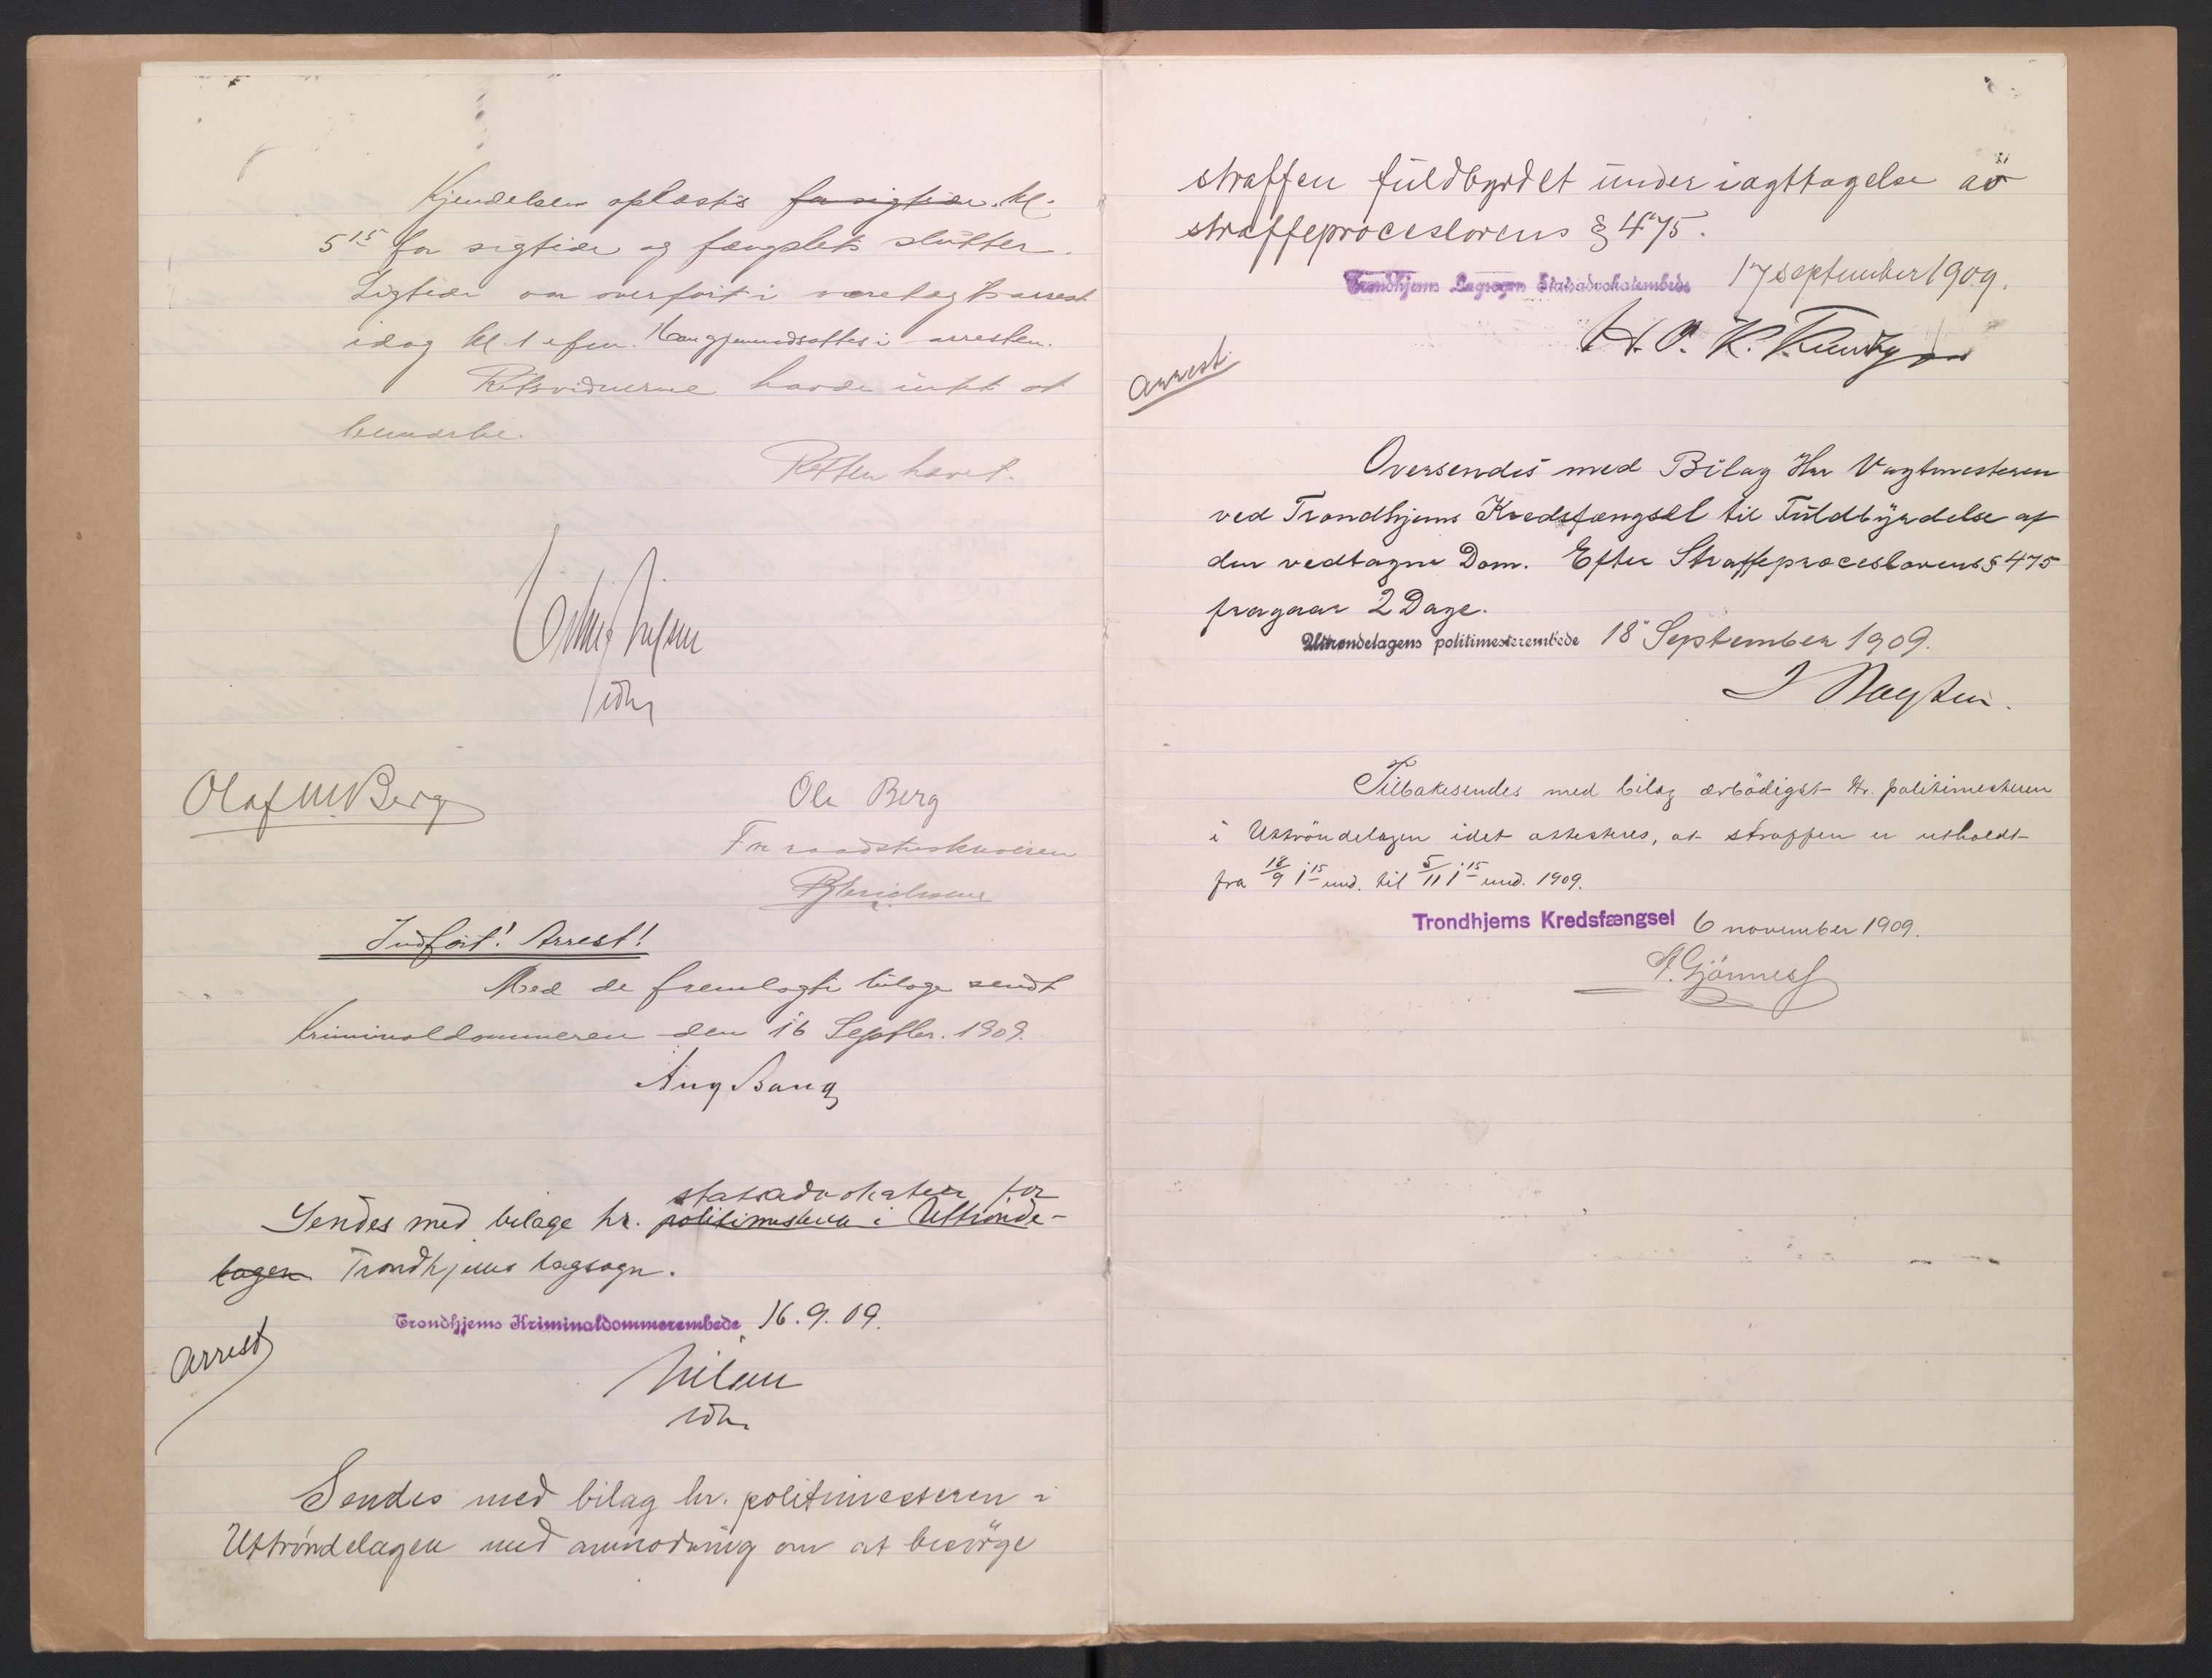 Kjendelsen oplæstes for sigtede. Kl.
5 15 for sigtede og fængslets slutter.
Sigtede var overført i varetægtsarrest
idag kl. 1 efm. Han gjenindsattes i arresten.
Retsvidnerne havde intet at
bemærke.
Retten hævet.
Nilsen
Olaf M Berg
Ole Berg
Indført! Arrest!
Med de fremlagte bilage sendt
Kriminaldommeren den 16 Septbr. 1909.
Aug Bang
statsadvokaten for
Sendes med bilage hr. politimesteren i Uttrønde-
lagen Trondhjems lagsogn.
Trondhjems Kriminaldommerembede 16.9.09.
Arrest
Nilsen
Sendes med bilag hr. politimesteren i
Uttrøndelagen med anmodning om at besørge
straffen fuldbyrdet under iagttagelse av
straffeproceslovens § 475.
Trondhjems Lagsogns Statsadvokatembede 17 september 1909.
Arrest
Oversendes med Bilag Hr Vagtmesteren
ved Trondhjems Kredsfængsel til Fuldbyrdelse af
den vedtagne Dom. Efter Straffeproceslovens § 475
fragaar 2 Dage.
Uttrøndelagens politimesterembede 18 September 1909.
Tilbakesendes med bilag ærbødigst Hr. politimesteren
i Uttrøndelagen idet attesteres, at straffen er utholdt
fra 18/9 1 15 emd. til 5/11 1 15 emd. 1909.
Trondhjems Kredsfængsel 6 november 1909.